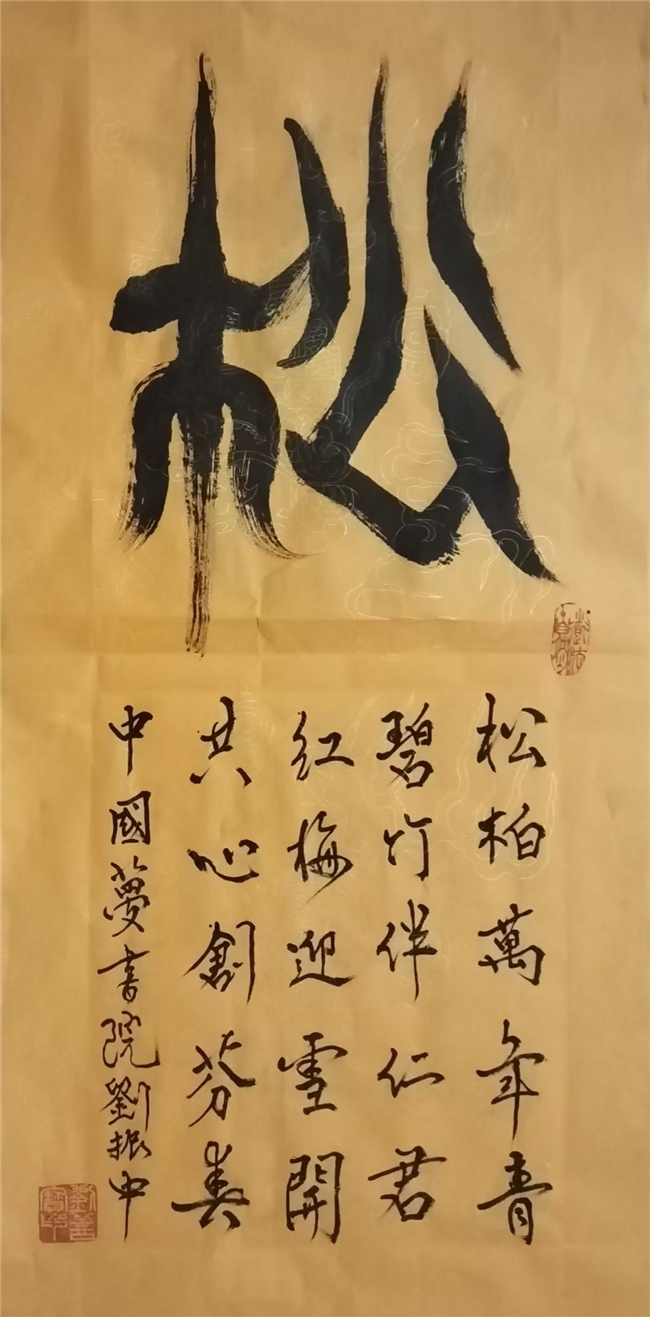 松
松柏萬年青
碧竹伴仁君
红梅迎雪開
共心創芬美
中國夢書院劉振中